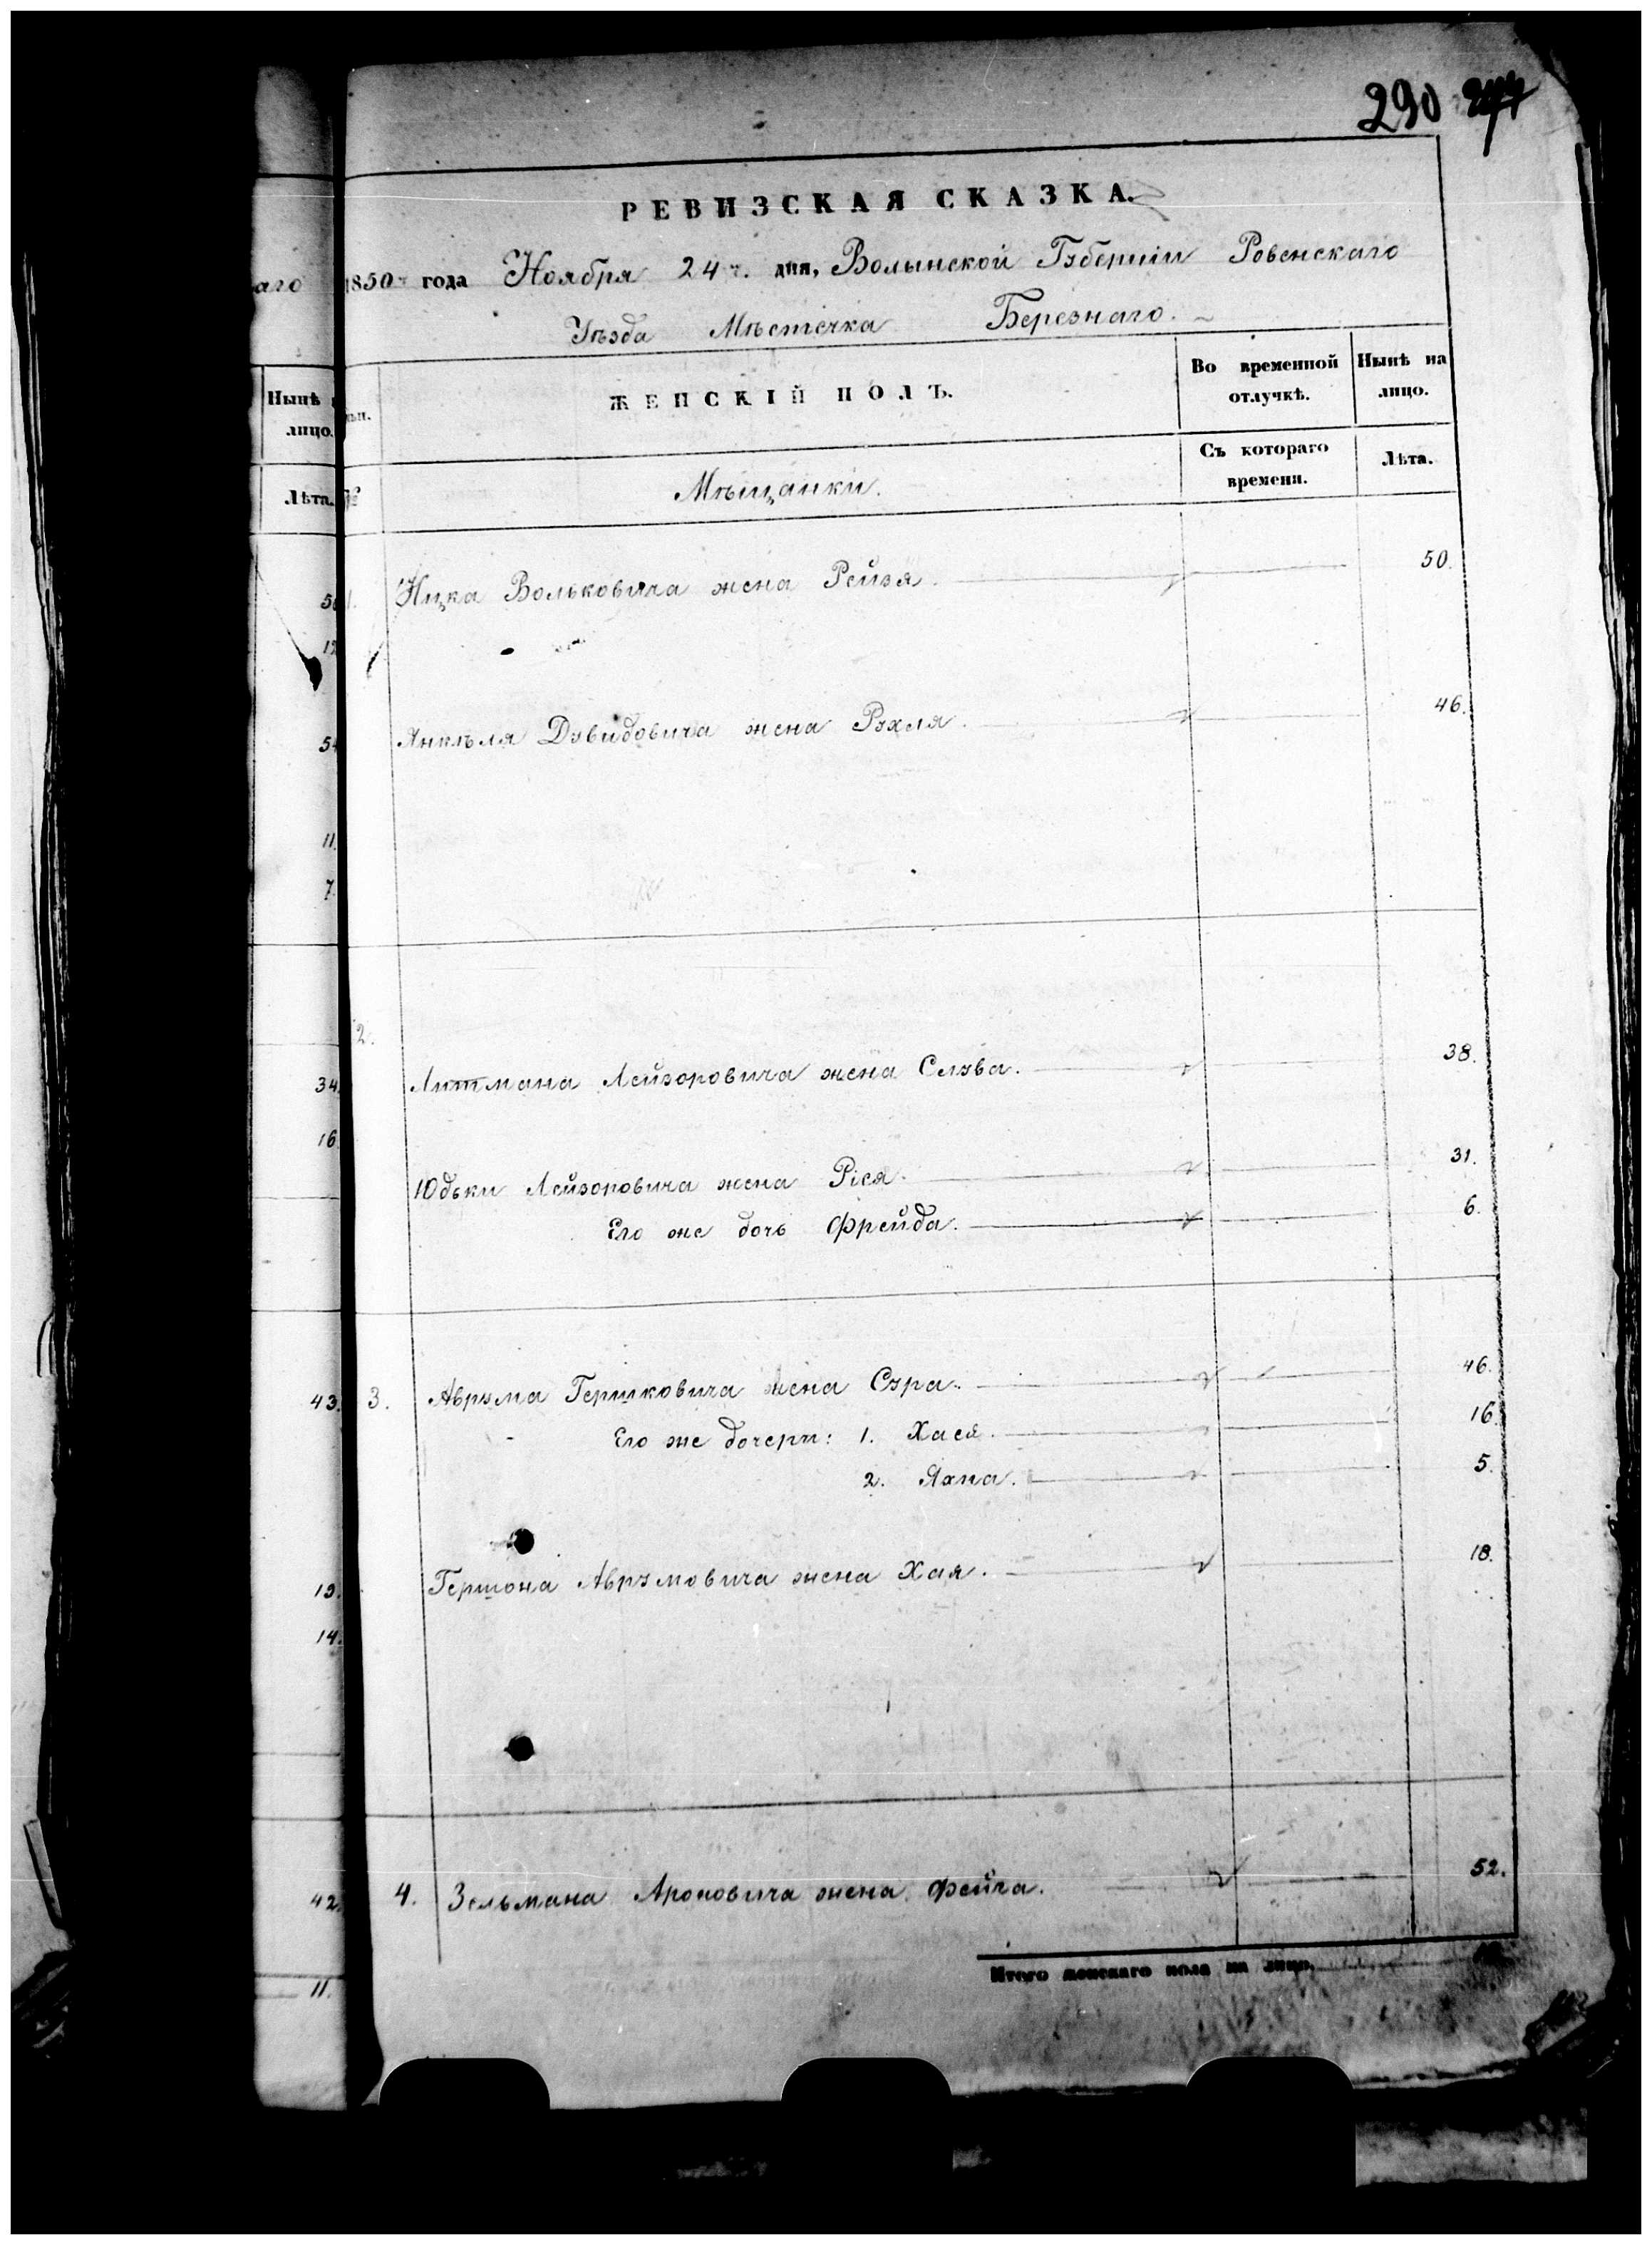 290 277
РЕВИЗСКАЯ СКАЗКА.
аго 1850 года Ноября 24 г. дня, Волынской Губерніи Ровенскаго
Уѣзда Мѣстечка Березнаго.
Нынѣ
лицо.
ЖЕНСКІЙ ПОЛЪ.
Во временной отлучкѣ.
Нынѣ на лицо.
Лѣта.
№
Мѣщанки.
Съ котораго времени.
Лѣта.
1. Ицка Вольковича жена Рейзя. 50.
54 Янкѣля Дувидовича жена Рухля. 46.
11.
7.
2.
34. Литмана Лейзоровича жена Слува. 38.
16
Юдьки Лейзоровича жена Рися. 31.
Его же дочь Фрейда. 6.
43. 3. Аврума Гершковича жена Сура. 46.
Его же дочери: 1. Хася. 16.
2. Яхна. 5.
19. Гершона Аврумовича жена Хая. 18.
14.
42. 4. Зельмана Ароновича жена Фейга. 52.
Итого женскаго пола на лицо.
11.